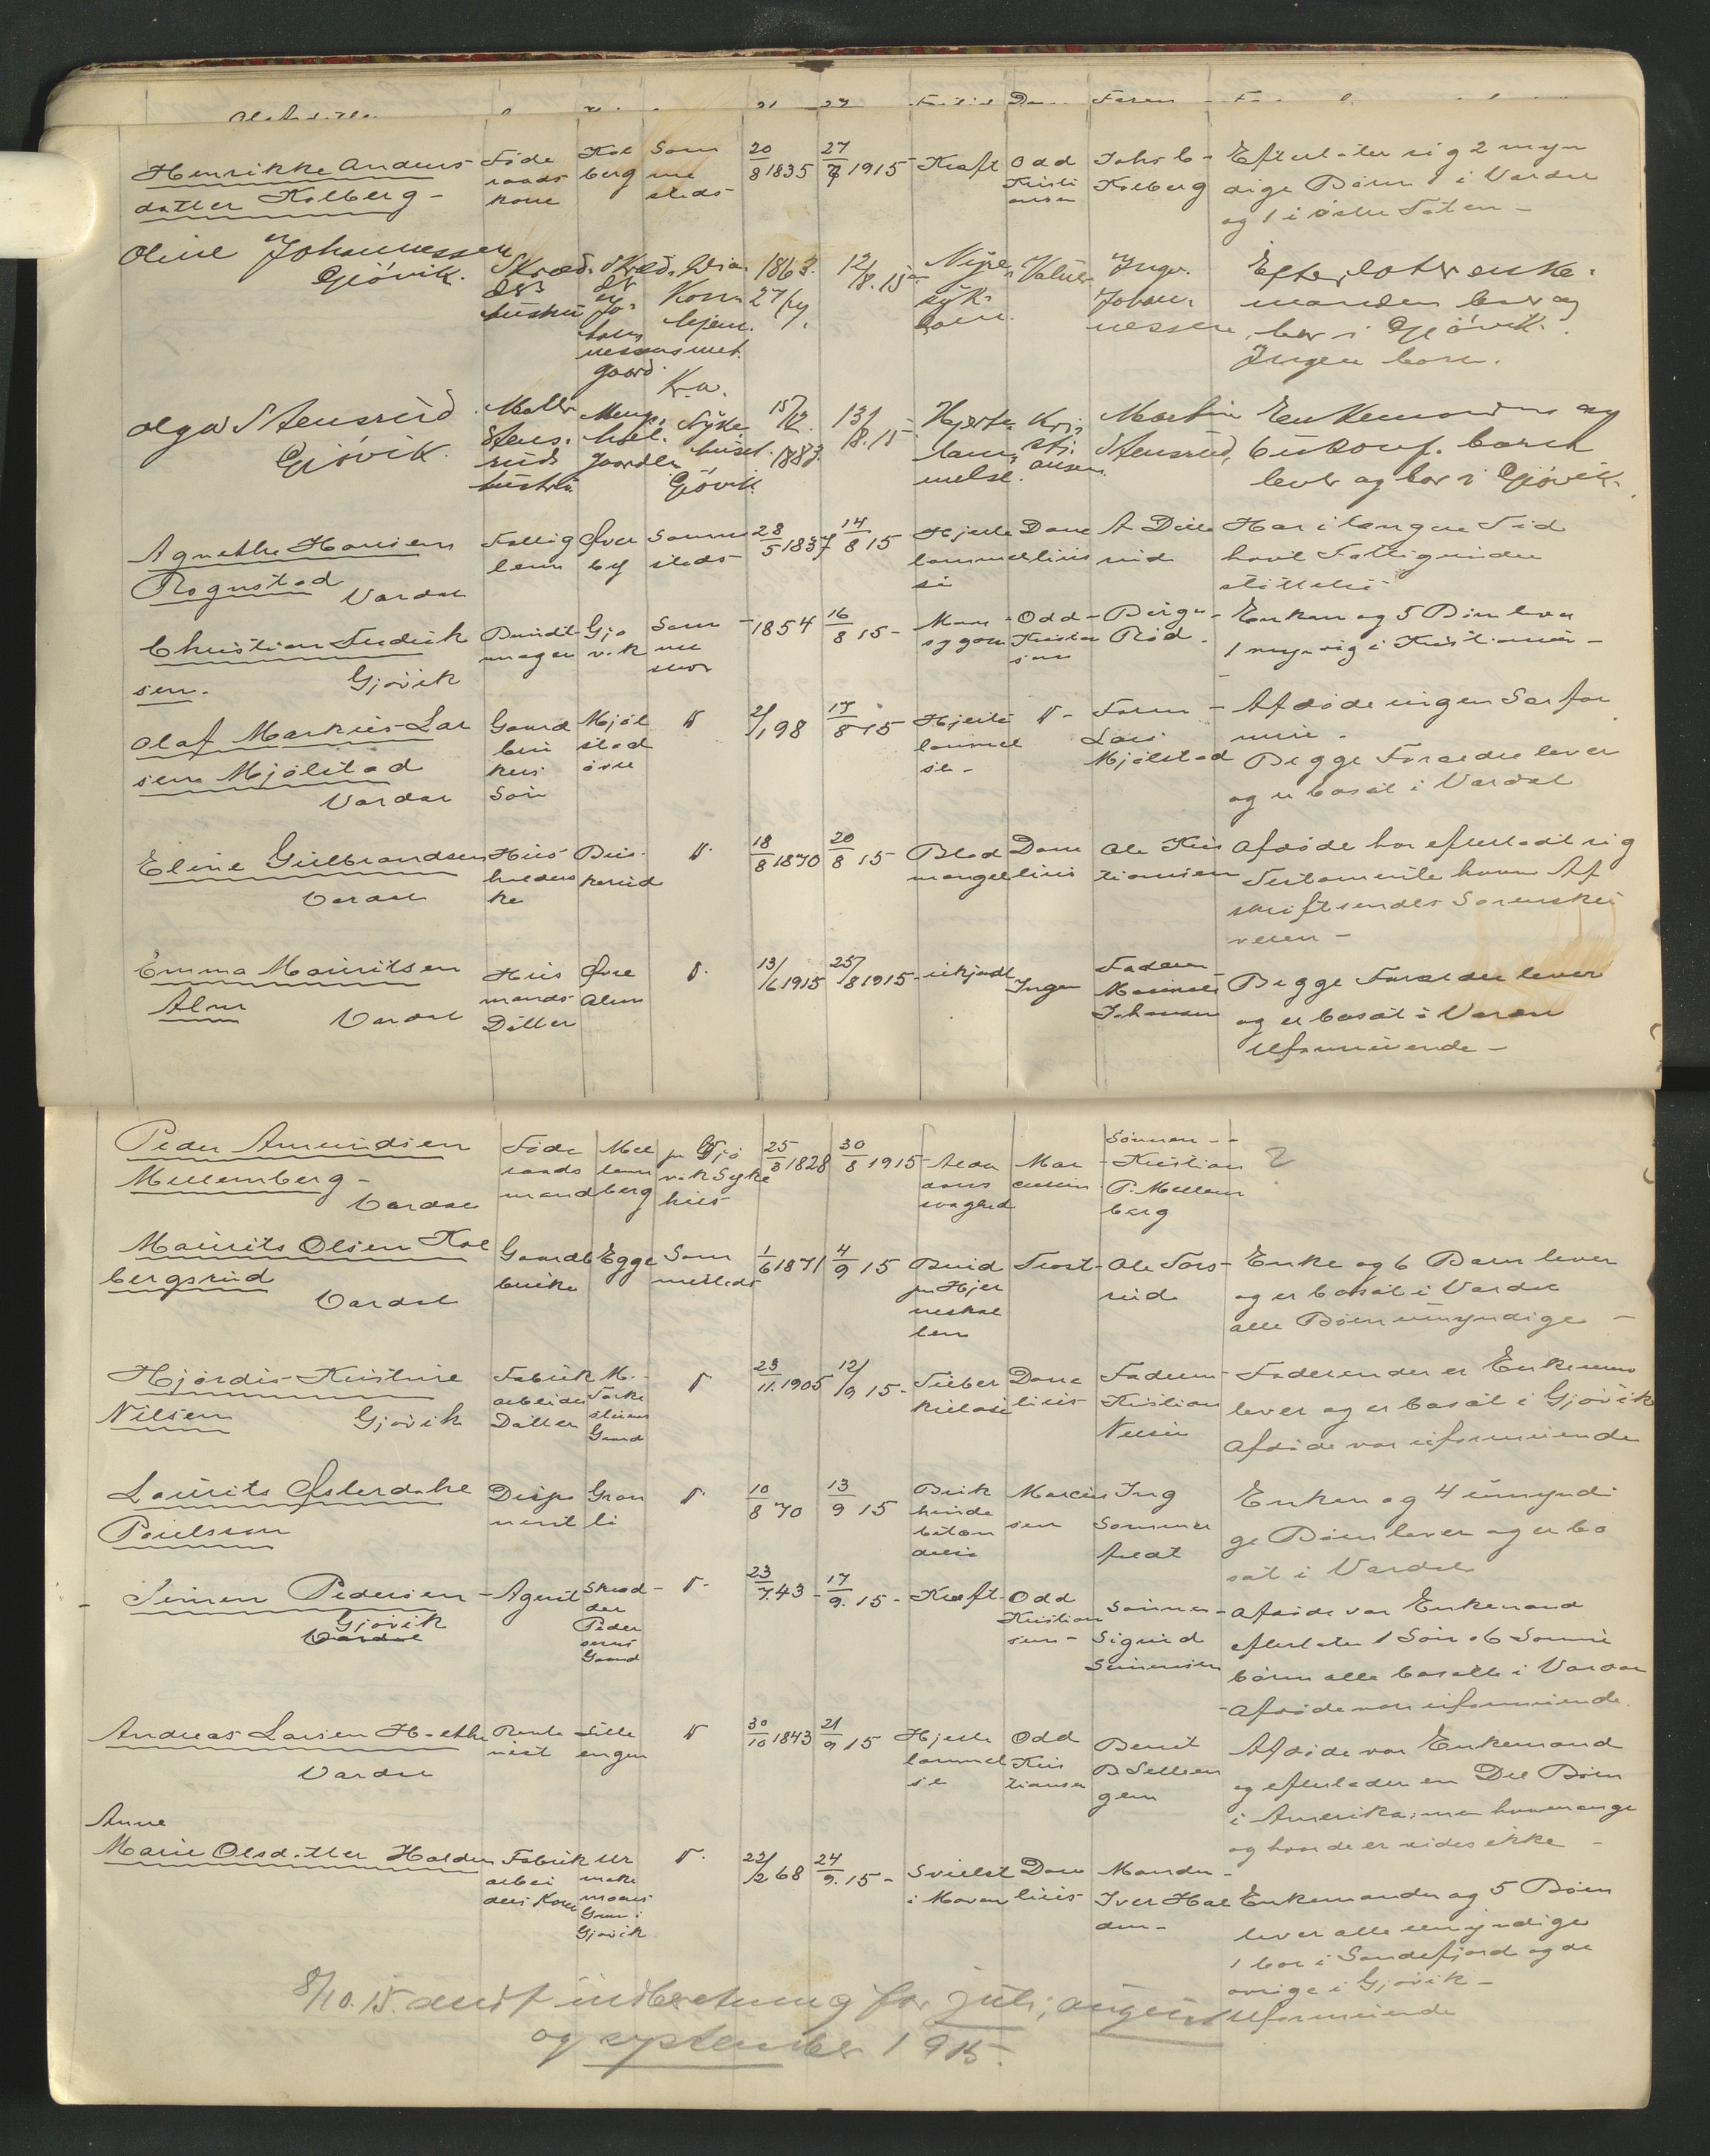 Henrikke Anders
datter Kolberg -
Føde
raads
kone
Kol
berg
Sam
me
steds
20/8 1835
27/7 1915
Kræft
Odd
Kristi
ansen
Jahs C-
Kolberg
Efterlater sig 2 myn
dige Børn 1 i Vardal
og 1 i østre Toten -
Oline Johannessen
Gjøvik.
Skræd.
ders
hustru
Skræd.
der
Jo-
han
nessens
gaard.
Dia-
kon
hjem-
met.
Kr.a.
1863.
27/
12/8. 15
Nyre
syk-
dom.
Valner
Inge.
Johan-
nessen
Efterlater enke-
manden lever og
bor i Gjøvik.
Ingen barn.
Olga Stensrud
Gjøvik.
Maler
Stens-
ruds
hustru
Meng-
hol.
gaarden
Syke
huset.
Gjøvik
15/12.
1883.
13/8. 15
Hjerte
lam-
melse.
Kri
sti
ansen.
Martin
Stensrud,
Enkemanden og
6 uconf. barn
lever og bor i Gjøvik.
Agnethe Hansen
Rognstad
Vardal
Fattig
lem
Øver
by
Samme
steds
28/5 1837
14/8 15
Hjerte
lammel
se
Dane
lius
A Dille
rud
Har i længere Tid
havt Fattigunder
støttelse
Christian Fredrik
sen.
Gjøvik
Bundt
mager
Gjø
vik
Sam
me
sted
1854
16/8 15 -
Mave
sygdom
Odd
Kristian
sen
Birger
Rød.
Enken og 5 Børn lever
1 myndig i Kristiania -
Olaf Markus Lar
sen Mjølstad
Vardal
Gaard
bru
kers
Søn
Mjøl
stad
øvre
2/1 98
17/8 15
Hjerte
lammel
se -
Faren
Lars
Mjølstad
Afdøde ingen Særfor
mue.
Begge Forældre lever
og er bosat i Vardal
Eline Gulbrandsen
Vardal
Hus
holders
ke
Bus
kerud
18/8 1870
20/8 15
Blod
mangel
Dane
lius
Ole Kris
tiansen
Afdøde har efterladt sig
Testamente hvoraf Af
skrift sendes Sorenskri
veren -
Emma Mauritsen
Alm
Vardal
Hus
mands
Datter
Øvre
Alm
13/6 1915
25/8 1915
ukjendt
Ingen
Faderen
Maurits
Johansen
Begge Forældre lever
og er bosat i Vardal
Uformuende -
Peder Amundsen
Mellemberg -
Vardal
Føde
raads
mand
Mel
lem
berg
pr Gjø
vik Syke
hus
25/3 1828
30/8 1915
Alder
doms
svaghed
Mar
cussen
Sønnen -
Kristian
P. Mellem
berg
?
Maurits Olsen Kol
bergsrud
Vardal
Gaardb
ruker
Egge
Sam
mesteds
1/6 1871
4/9 15
Brud
pr Hjer
neskal
len
Trost
Ole Tors
rud
Enke og 6 Børn lever
og er bosat i Vardal
alle Børn umyndige -
Hjørdis Kristine
Nilsen
Gjøvik
Fabrik
arbeider
Datter
M.
Torke
stens
Gaard
23/11. 1905
12/9 15 -
Tuber
kulose
Dane
lius
Faderen
Kristian
Nilsen
Faderen der er Enkeman
lever og er bosat i Gjøvik
Afdøde var uformuende
Laurits Østerdahl
Poulsson
Dispo
nent
Gran
li
10/8 70
13/9 15
Buk
hinde
betæn
delse
Marcus
sen
Ing
Sommer
feldt
Enken og 4 umyndi
ge Børn lever og er bo
sat i Vardal
Simen Pedersen
Gjøvik
Vardal
Agent
Skræd
der
Peder
sens
Gaard
23/7. 43 -
17/9. 15 -
Kræft
Odd
Kristian
sen -
Sønnen
Sigurd
Simensen
Afdøde var Enkemand
efterlater 1 Søn o 6 Sønne
børn alle bosatte i Vardal
- Afdøde var uformuende.
Andreas Larsen H-ethe
Vardal
Rente
nist
Lille
engen
30/10 1843
21/9 15
Hjerte
lammel
se
Odd
Kris
tiansen
Bernt
B. Lilleen
gen
Afdøde var Enkemand
og efterlader en Del Børn
i Amerika, men hvormange
og hvor de er vides ikke -
Anne
Marie Olsdatter Halden
Fabrik
arbei
ders Kone
Ur
make
moens
Gaard i
Gjøvik
22/2 68
24/9. 15 -
Svulst
i Maven
Dane
lius
Manden -
Iver Hal
den -
Enkemanden og 5 Børn
lever alle umyndige
1 bor i Sandefjord og de
øvrige i Gjøvik -
Uformuende
8/10. 15. sendt indberetning for juli, august
og september 1915.